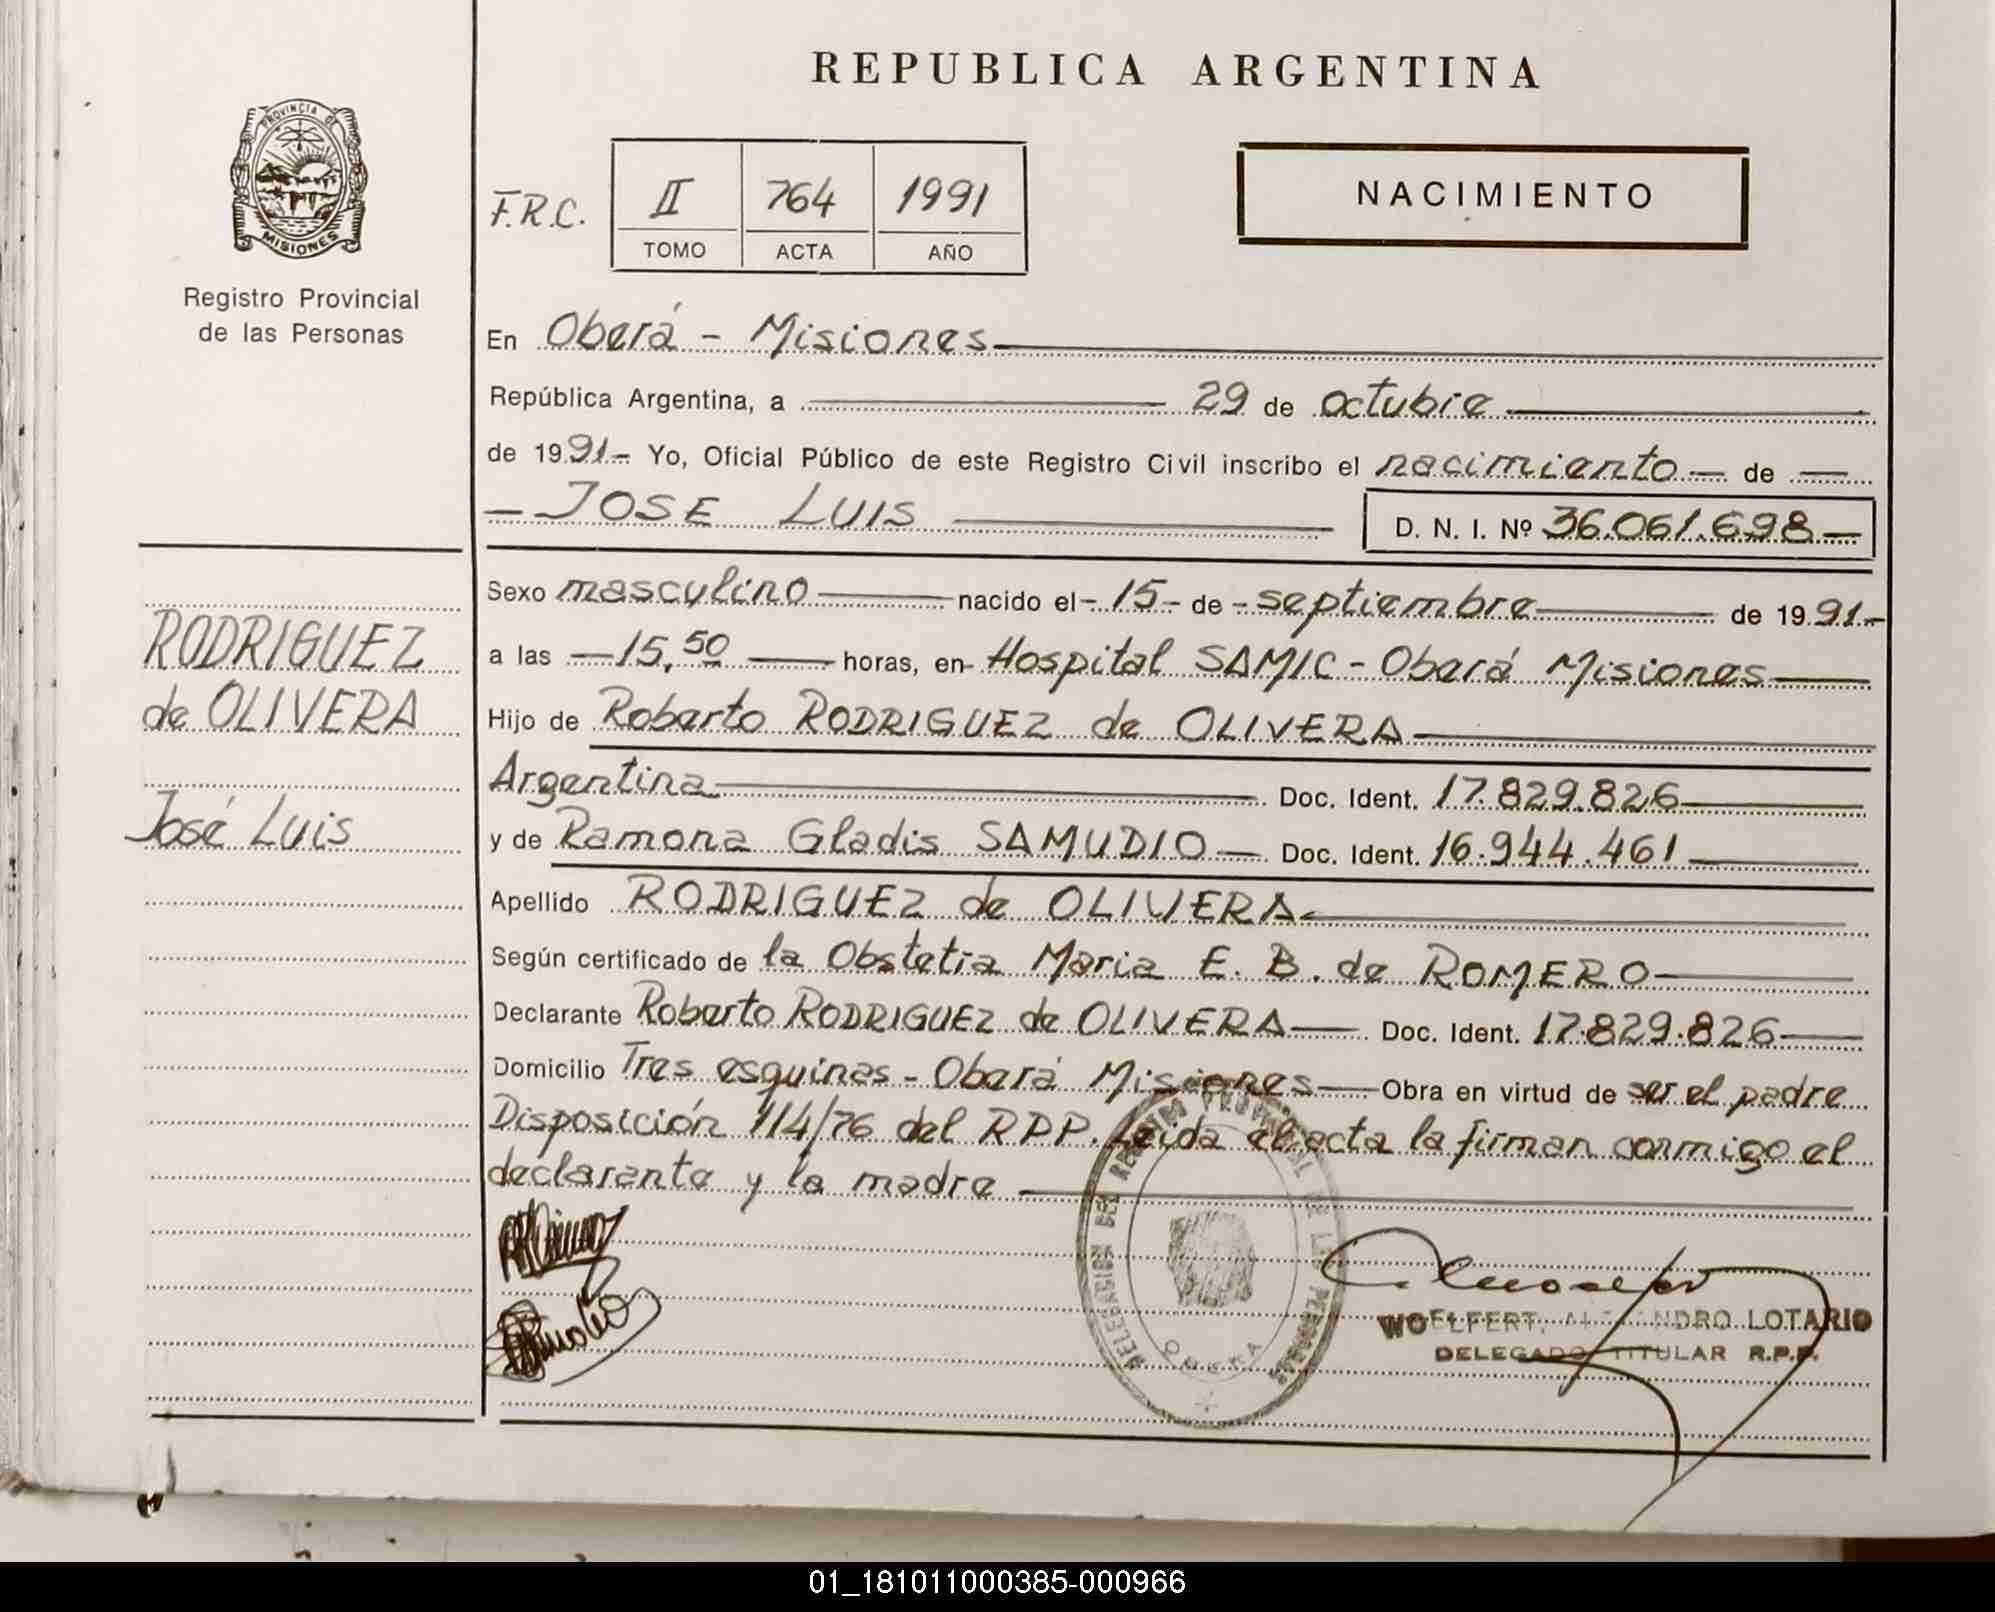 REPUBLICA ARGENTINA
PROVINCIA DE
MISIONES
Registro Provincial
de las Personas
F.R.C.
II 764 1991
TOMO ACTA AÑO
NACIMIENTO
En Oberá - Misiones
República Argentina, a 29 de octubre
de 1991- Yo, Oficial Público de este Registro Civil inscribo el nacimiento - de -
- JOSE LUIS
D. N. I. Nº 36.061.698-
RODRIGUEZ
de OLIVERA
José Luis
Sexo masculino nacido el - 15 - de - septiembre de 1991-
a las - 15,50 horas, en Hospital SAMIC - Oberá Misiones
Hijo de Roberto RODRIGUEZ de OLIVERA
Argentina Doc. Ident. 17.829.826
y de Ramona Gladis SAMUDIO - Doc. Ident. 16.944.461
Apellido RODRIGUEZ de OLIVERA
Según certificado de la Obstetra Maria E. B. de ROMERO
Declarante Roberto RODRIGUEZ de OLIVERA Doc. Ident. 17.829.826
Domicilio Tres esquinas - Oberá Misiones Obra en virtud de ser el padre
Disposición 114/76 del RPP. Leida el acta la firman conmigo el
declarante y la madre
DELEGACION DEL REGISTRO PROVINCIAL DE LAS PERSONAS
OBERA
WOELFERT, ALEJANDRO LOTARIO
DELEGADO TITULAR R.P.P.
01_181011000385-000966